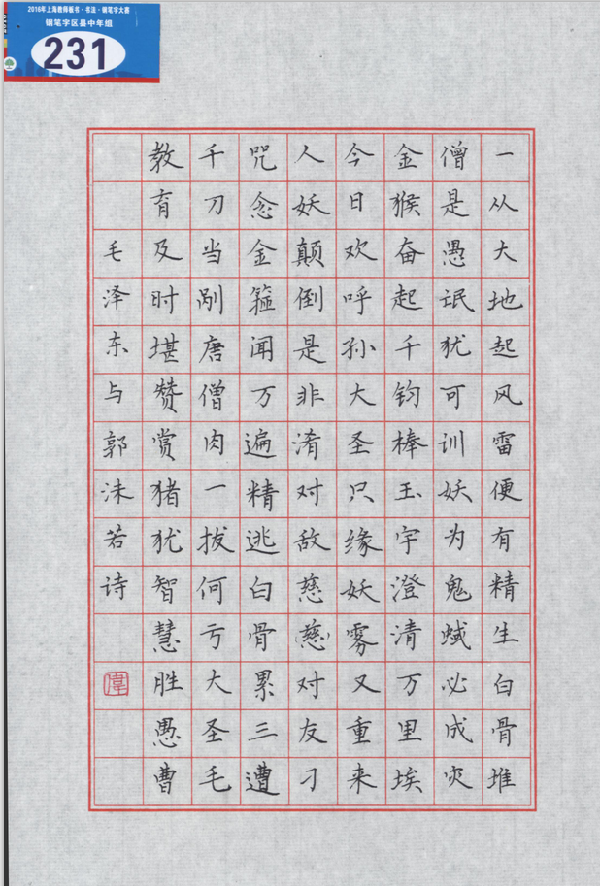 2016年上海教师板书·书法·钢笔字大赛
钢笔字区县中年组
231
一从大地起风雷便有精生白骨堆
僧是愚氓犹可训妖为鬼蜮必成灾
金猴奋起千钧棒玉宇澄清万里埃
今日欢呼孙大圣只缘妖雾又重来
人妖颠倒是非淆对敌慈慈对友刁
咒念金箍闻万遍精逃白骨累三遭
千刀当剐唐僧肉一拔何亏大圣毛
教育及时堪赞赏猪犹智慧胜愚曹
毛泽东与郭沫若诗